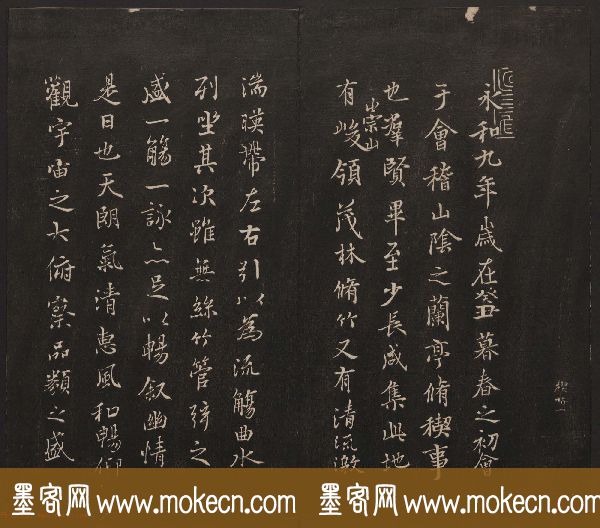 永和九年歲在癸丑暮春之初會
于會稽山陰之蘭亭脩稧事
也羣賢畢至少長咸集此地
有崇山峻領茂林脩竹又有清流激
湍暎帶左右引以為流觴曲水
列坐其次雖無絲竹管弦之
盛一觴一詠亦足以暢叙幽情
是日也天朗氣清惠風和暢仰
觀宇宙之大俯察品類之盛
墨客网 www.mokecn.com
墨客网 www.mokecn.com